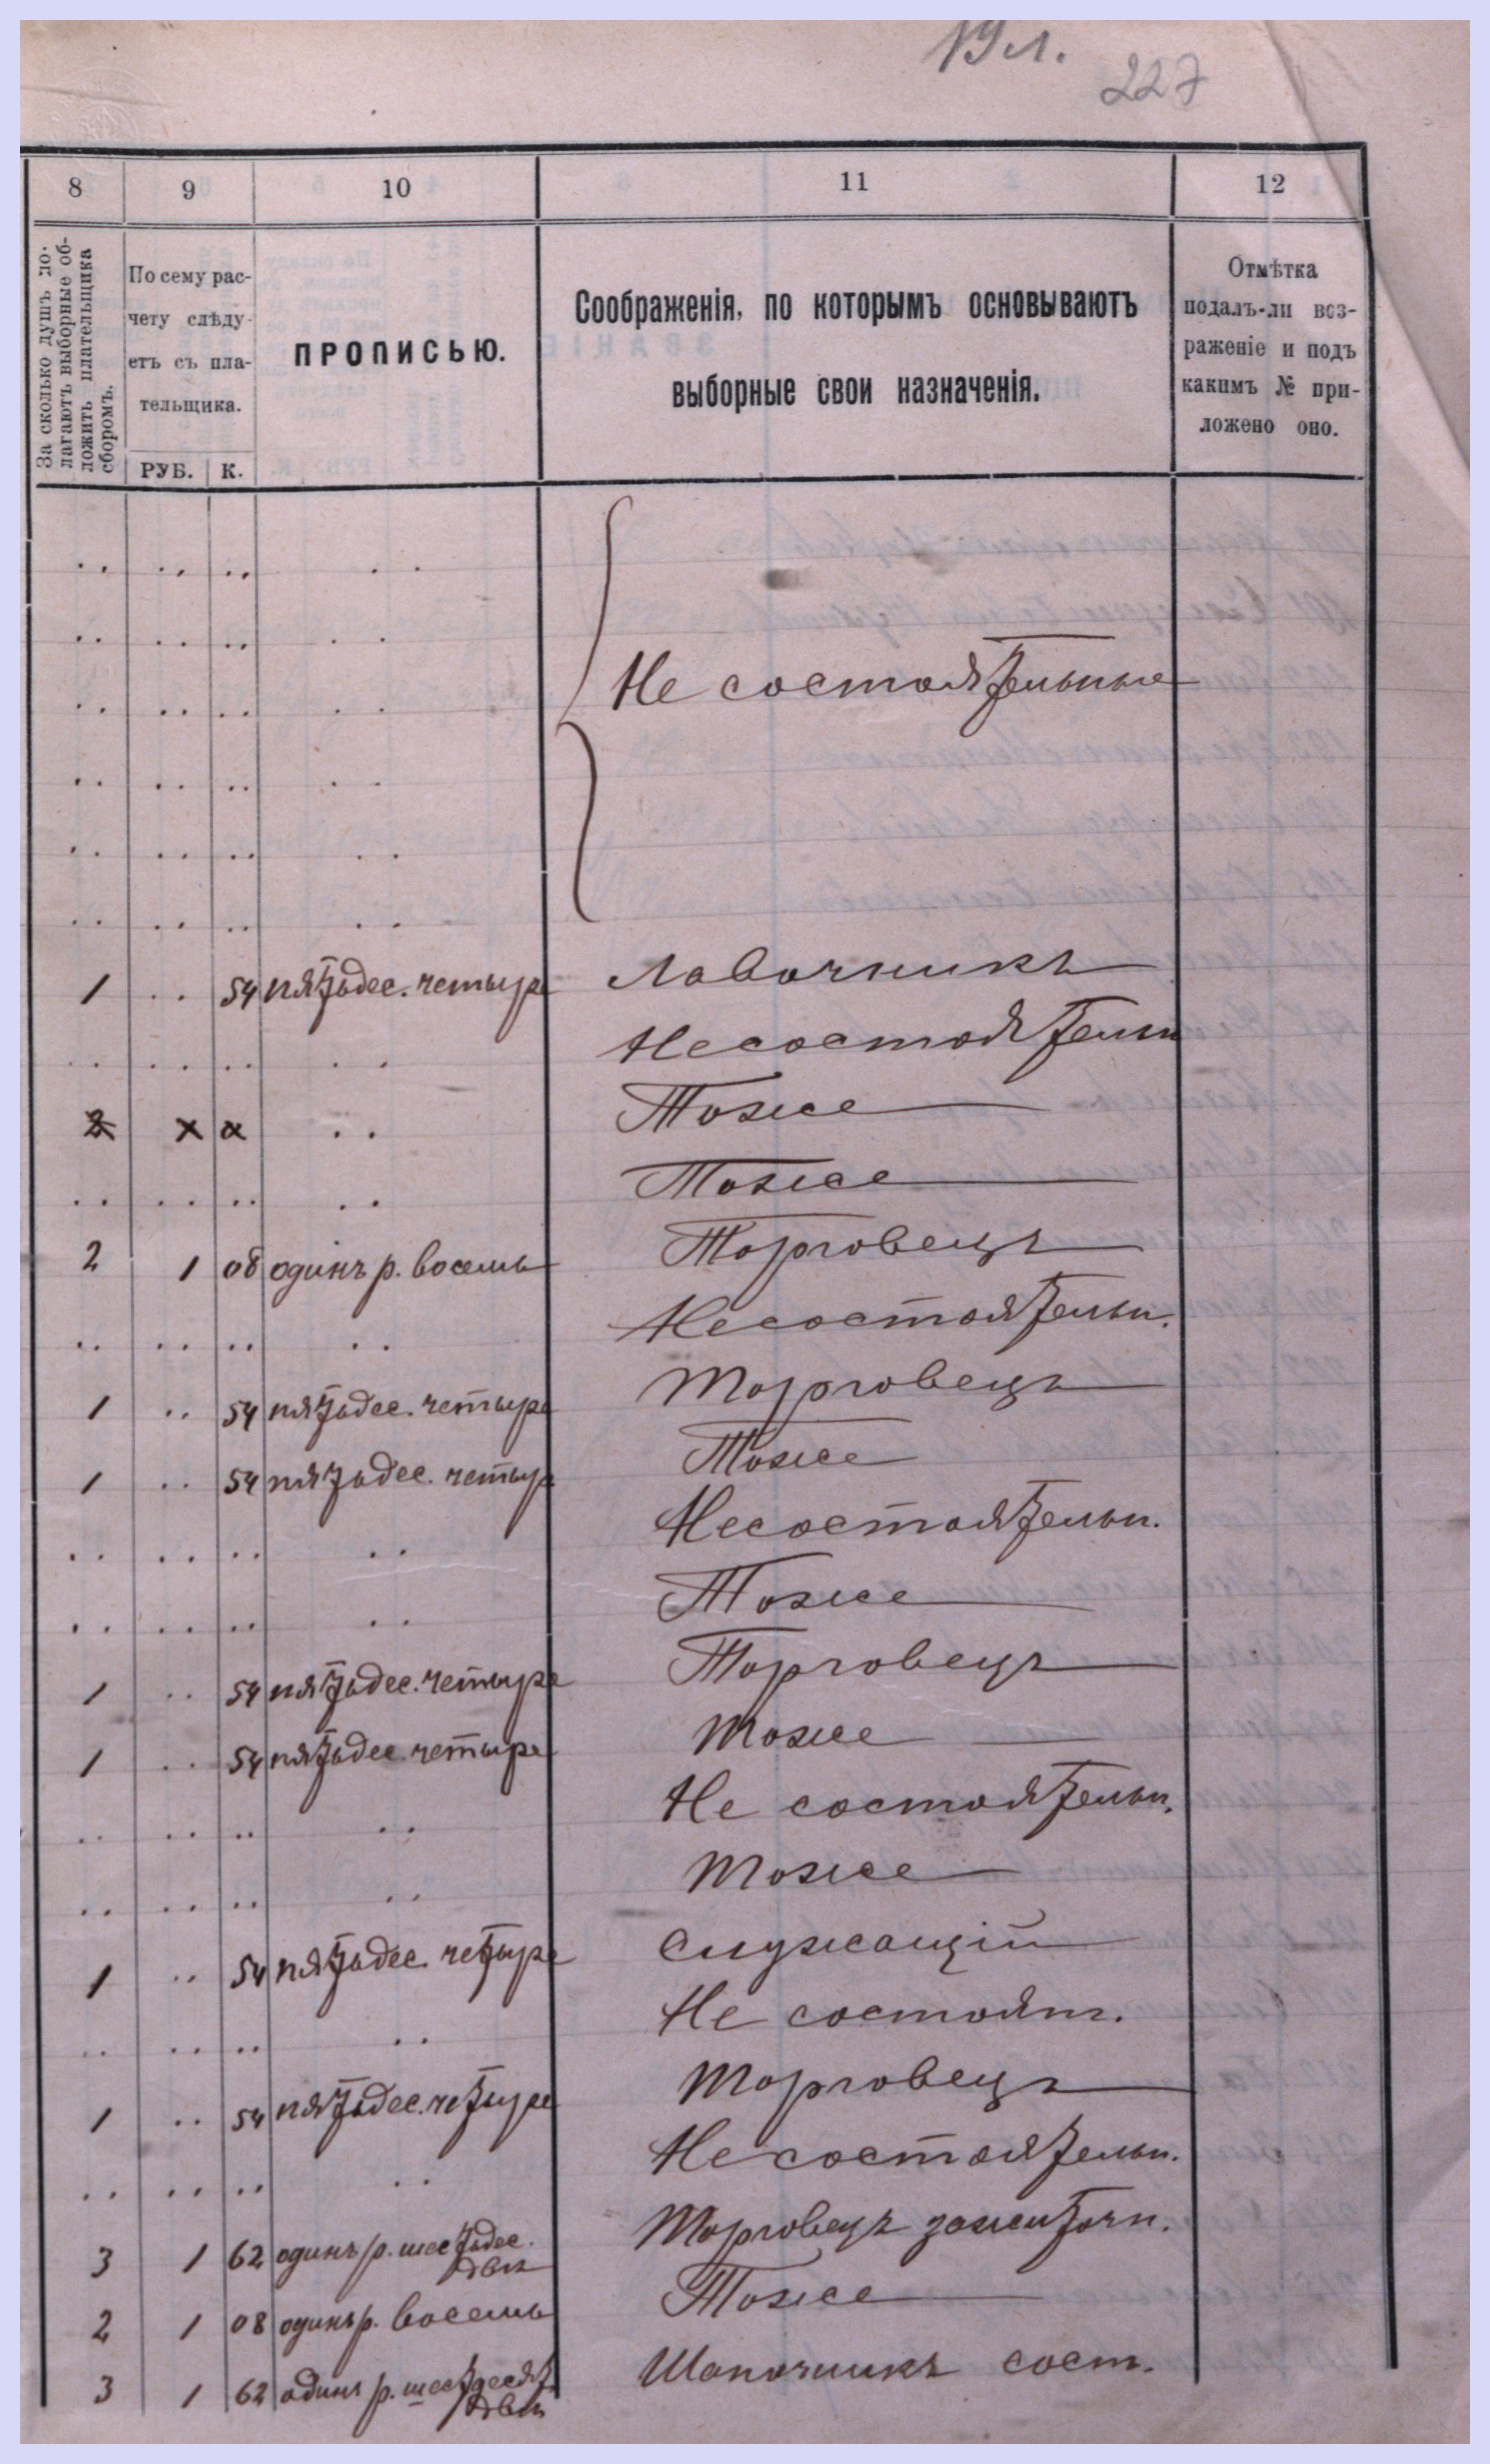 19 л.
227
8 9 10 11 12
За сколько душъ по-
лагаютъ выборные об-
ложить плательщика
сборомъ.
По сему рас-
чету слѣду-
етъ съ пла-
тельщика.
РУБ. К.
ПРОПИСЬЮ.
Соображенія, по которымъ основываютъ
выборные свои назначенія.
Отмѣтка
подалъ-ли воз-
раженіе и подъ
какимъ № при-
ложено оно.
.. .. .. ..
.. .. .. ..
Не состоятельные
.. .. .. ..
.. .. .. ..
.. .. .. ..
.. .. .. ..
1 .. 54 пятьдес. четыре Лавочникъ
.. .. .. .. Несостоятельн
.. Тоже
.. .. .. .. Тоже
2 1 08 одинъ р. восемь Торговецъ
.. .. .. .. Несостоятельн.
1 .. 54 пятьдес. четыре Торговецъ
1 .. 54 пятьдес. четыре Тоже
.. .. .. .. Несостоятельн.
.. .. .. .. Тоже
1 .. 54 пятьдес. четыре Торговецъ
1 .. 54 пятьдес. четыре Тоже
.. .. .. .. Не состоятельн.
.. .. .. .. Тоже
1 .. 54 пятьдес. четыре Служащій
.. .. .. .. Не состоят.
1 .. 54 пятьдес. четыре Торговецъ
.. .. .. .. Не состоятельн.
3 1 62 одинъ р. шестьдес. Торговецъ зажиточн.
два
2 1 08 одинъ р. восемь Тоже
3 1 62 одинъ р. шестьдесят Шапочникъ сост.
два